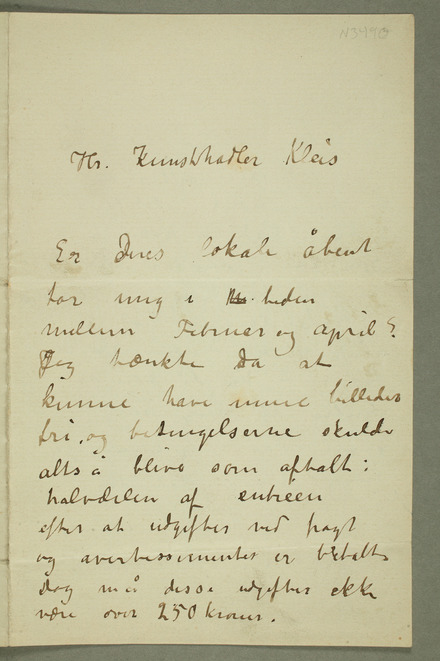 N3498
Hr. Kunsthadler Kleis
Er Deres lokale åbent
for mig i tiden
mellem Februar og april?
Jeg tænkte da at
kunne have mine billeder
fri, og betingelserne skulde
altså blive som aftalt:
halvdelen af entreen
efter at udgifter ved fragt
og avertissementer er betalt
dog må disse udgifter ikke
være over 250 kroner.